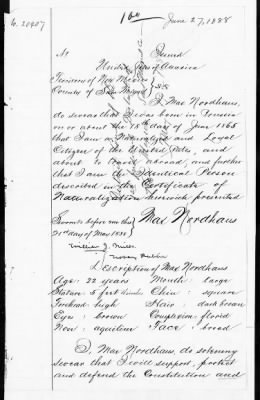 No. 20407
100
June 27, 1888
United States of America
Territory of New Mexico } SS
County of San Miguel
I, Max Nordhaus,
do swear that I was born in
on or about the 15th day of June 1865
that I am a Naturalized and Loyal
Citizen of the United States, and
about to travel abroad, and further
that I am the Identical Person
described in the Certificate of
Naturalization herewith presented
Sworn to before me this Max Nordhaus
21st day of May 1888
Notary Public
Description of Max Nordhaus
Age: 22 years Mouth: large
Stature: 5 feet Chin: square
Forehead: high Hair: dark brown
Eyes: brown Complexion: florid
Nose: aquiline Face: broad
I, Max Nordhaus, do solemnly
swear that I will support, protect
and defend the Constitution and